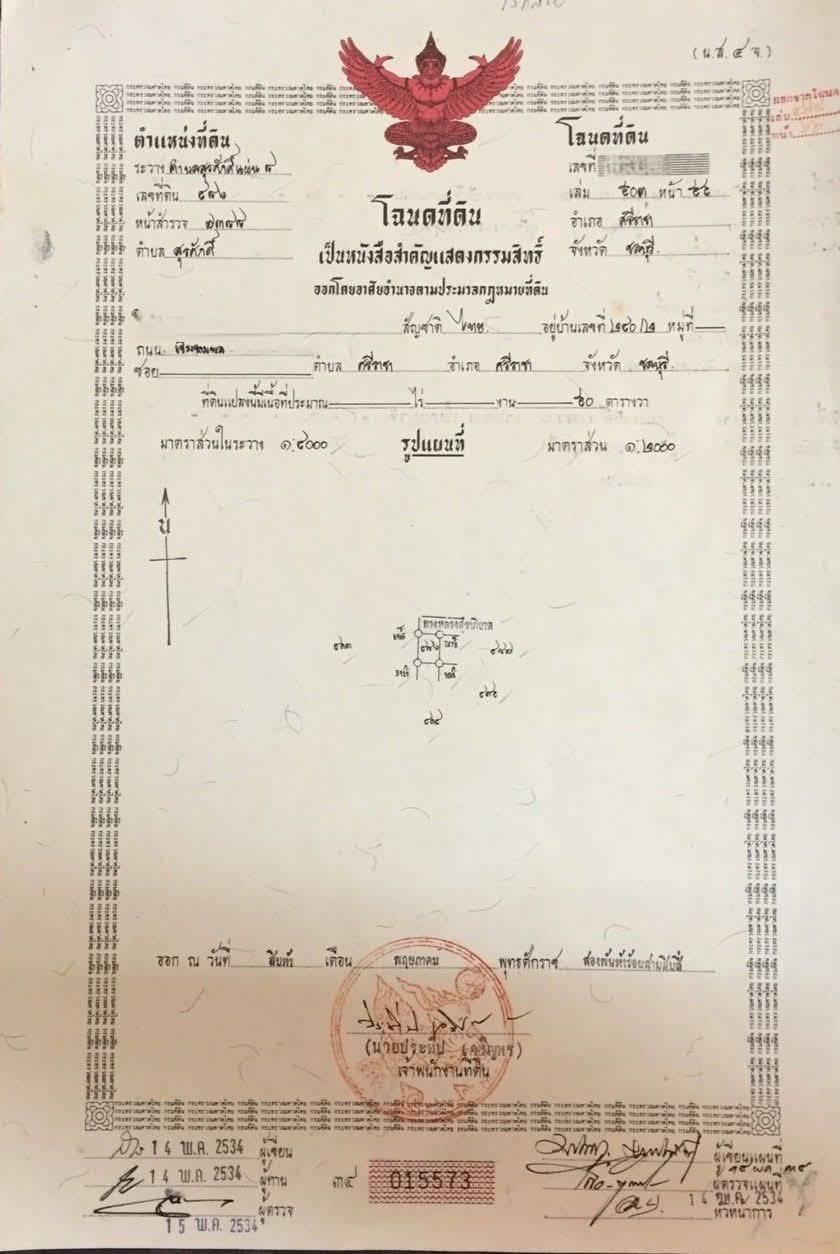 (น.ส. ๔ จ.)
ตำแหน่งที่ดิน
ระวาง ตำบลสุรศักดิ์แผ่น ๘
เลขที่ดิน
หน้าสำรวจ
ตำบล สุรศักดิ์
โฉนดที่ดิน
เลขที่
เล่ม ๕๐๓ หน้า ๕๕
อำเภอ ศรีราชา
จังหวัด ชลบุรี
โฉนดที่ดิน
เป็นหนังสือสำคัญแสดงกรรมสิทธิ์
ออกโดยอาศัยอำนาจตามประมวลกฎหมายที่ดิน
สัญชาติ ไทย อยู่บ้านเลขที่ หมู่ที่
ถนน เจิมจอมพล
ซอย ตำบล ศรีราชา อำเภอ ศรีราชา จังหวัด ชลบุรี
ที่ดินแปลงนี้มีเนื้อที่ประมาณ ไร่ งาน ๕๐ ตารางวา
มาตราส่วนในระวาง ๑:๔๐๐๐ รูปแผนที่ มาตราส่วน ๑:๒๐๐๐
น
ทางหลวงสุขาภิบาล
ออก ณ วันที่ สิบห้า เดือน พฤษภาคม พุทธศักราช สองพันห้าร้อยสามสิบสี่
(นายประทีป เจริญพร)
เจ้าพนักงานที่ดิน
14 พ.ค. 2534 ผู้เขียน
14 พ.ค. 2534 ผู้ทาน
15 พ.ค. 2534 ผู้ตรวจ
๓๔ 015573
ผู้เขียนแผนที่
ผู้ตรวจแผนที่
14 พ.ค. 2534
หัวหน้าการ